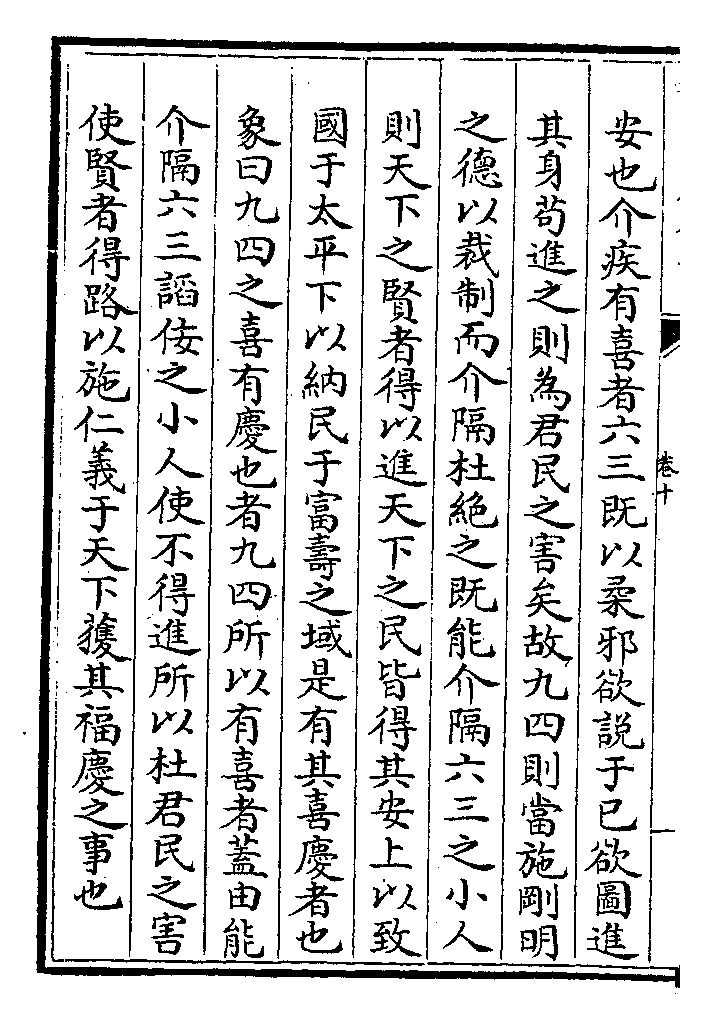 安也介疾有喜者六三既以柔邪欲説于已欲圖進
其身茍進之則為君民之害矣故九四則當施剛明
之德以裁制而介隔杜絶之既能介隔六三之小人
則天下之賢者得以進天下之民皆得其安上以致
國于太平下以納民于富壽之域是有其喜慶者也
象曰九四之喜有慶也者九四所以有喜者蓋由能
介隔六三諂佞之小人使不得進所以杜君民之害
使賢者得路以施仁義于天下獲其福慶之事也
卷十